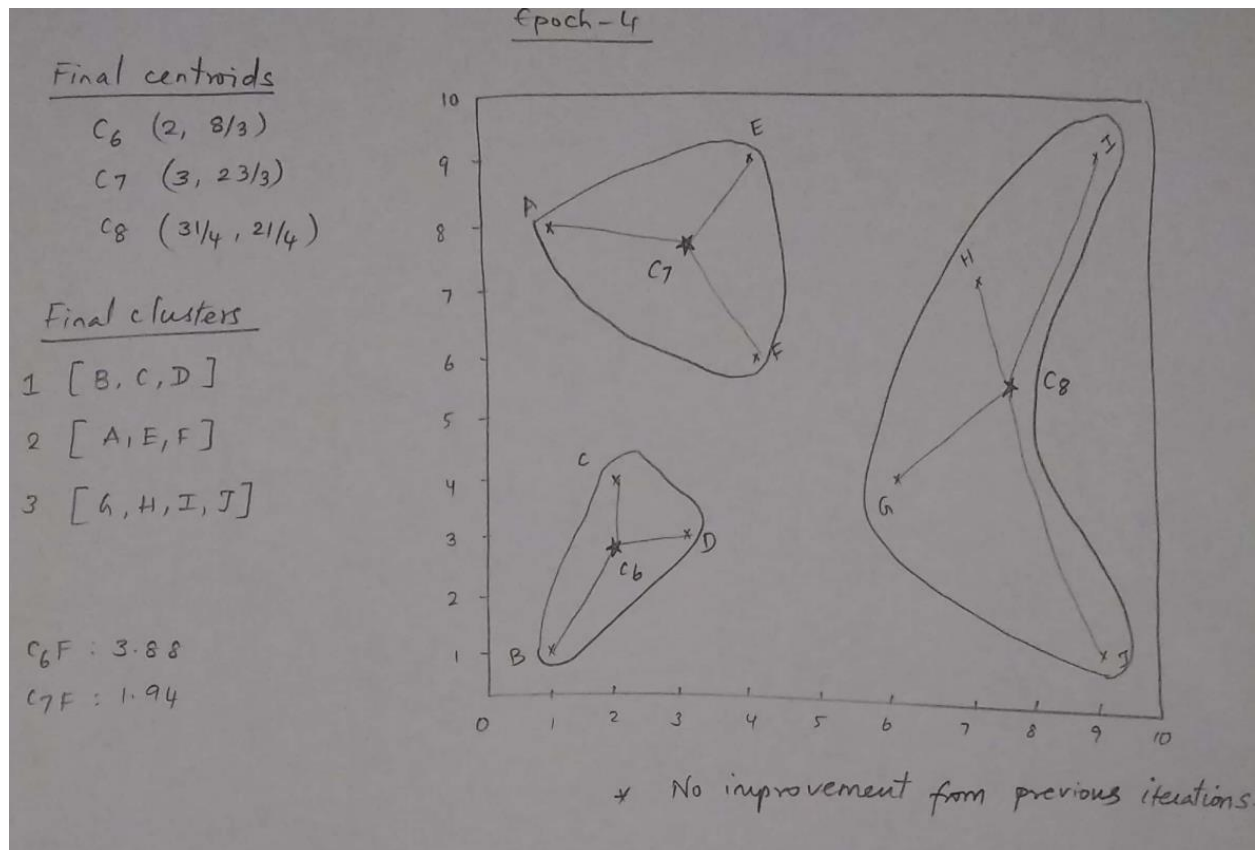 Epoch-4
Final centroids
C6 (2, 8/3)
C7 (3, 23/3)
C8 (31/4, 21/4)
Final clusters
1 [B, C, D]
2 [A, E, F]
3 [G, H, I, J]
C6F : 3.88
C7F : 1.94
10
9
8
7
6
5
4
3
2
1
0 1 2 3 4 5 6 7 8 9 10
E
I
A
H
C7
F
C8
C
G
D
C6
B
J
* No improvement from previous iterations.